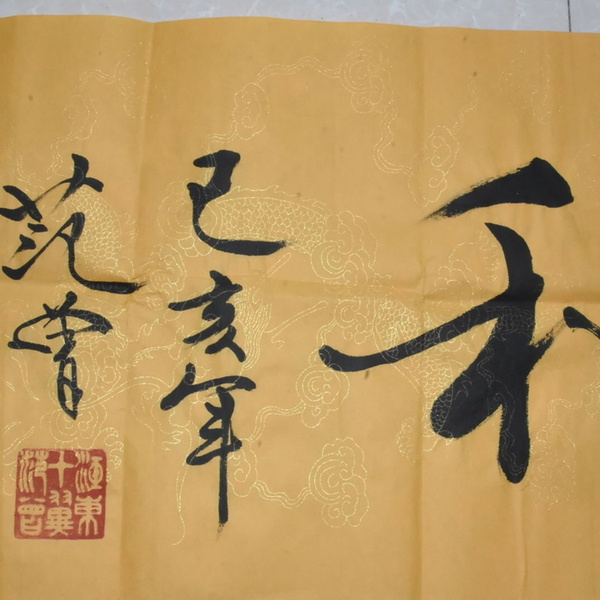 己亥年
范曾
江東
十翼
范曾